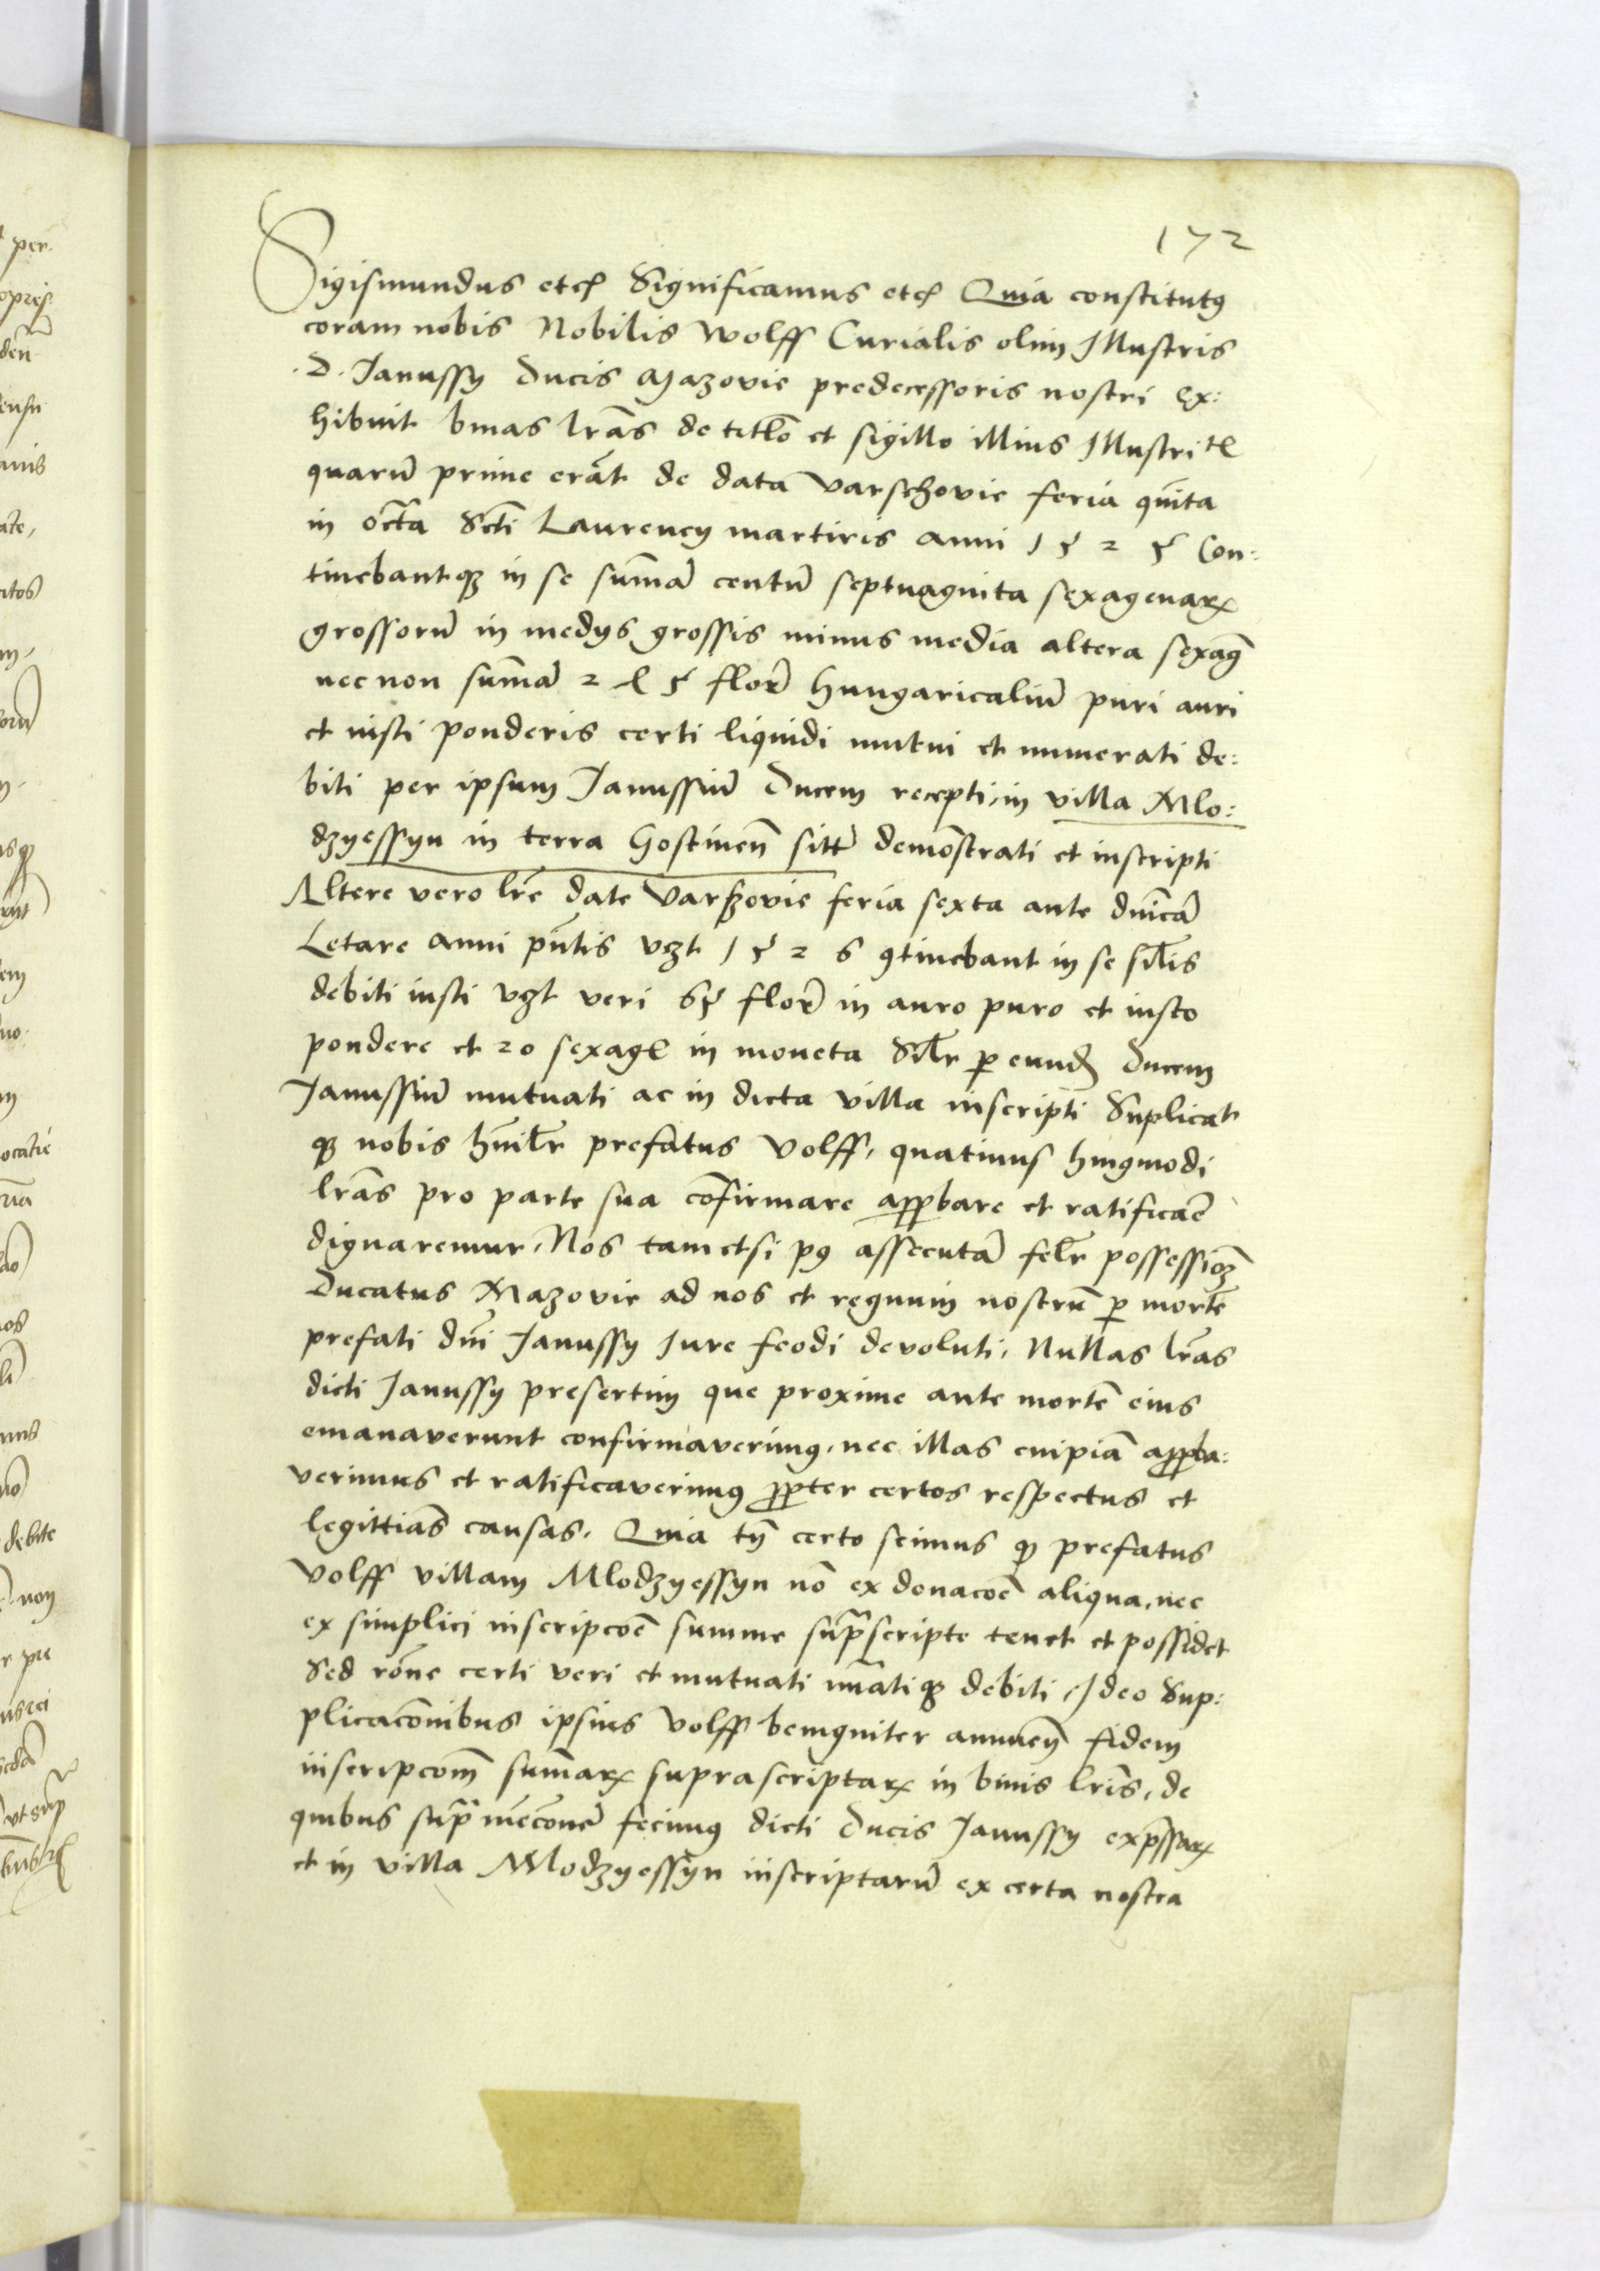 172
Sigismundus etc Significamus etc Quia constitutꝰ
coram nobis Nobilis Wolff Curialis olim Illustris
.D. Janussy Ducis Mazovie predecessoris nostri Ex:
hibuit binas lrãs de titl̃o et sigillo illius Illustri
quarũ prime erãt de data Varschovie feria quĩta
in octã Scti Laurency martiris anni 1525 Con:
tinebantqꝫ in se sum̃ã centũ septuaginta sexagenaꝝ
grossorũ in medys grossis minus media altera sexag̃
nec non sum̃ã florẽ hungaricaliũ puri auri
et iusti ponderis certi liquidi mutui et numerati de:
biti per ipsum Janussiũ Ducem recepti, in villa Mlo:
dzyessyn in terra Gostinen̄ sitẽ demõstrati et inscripti
Altere vero lrẽ date Varssovie feria sexta ante dnĩcã
Letare anni pñtis vꝫt 1526 ꝯtinebant in se sil̃is
debiti iusti vꝫt veri 65 florẽ in auro puro et iusto
pondere et 20 sexage in moneta Sil̃r ꝑ eundẽ Ducem
Janussiũ mutuati ac in dicta villa inscripti Suplicat
qꝫ nobis hũil̃r prefatus Volff, quatinus huiꝰmodi
lrãs pro parte sua cõfirmare approbare et ratificãe
dignaremur, Nos tametsi pꝰ assecutã fel̃r possessionẽ
Ducatus Mazovie ad nos et regnum nostrũ ꝑ mortẽ
prefati dñi Janussy Jure feodi devoluti, Nullas lrãs
dicti Janussy presertim que proxime ante mortẽ eius
emanaverunt confirmaverimꝰ, nec illas cuipiã approba:
verimus et ratificaverimꝰ ꝓpter certos respectus et
legittiãs causas, Quia tñ certo scimus ꝙ prefatus
Volff villam Mlodzyessyn nõ ex donacõe aliqua, nec
ex simplici inscripcõe summe supͣscripte tenet et possidet
Sed rõne certi veri et mutuati nũatiqꝫ debiti, Ideo Sup:
plicacõnibus ipsius Volff benigniter annueñ fidem
inscripcõm sum̃aꝝ suprascriptaꝝ in binis lrĩs, de
quibus supͣ mẽcõnẽ fecimꝰ dicti Ducis Janussy exp̃ssaꝝ
et in villa Mlodzyessyn inscriptarũ ex certa nostra